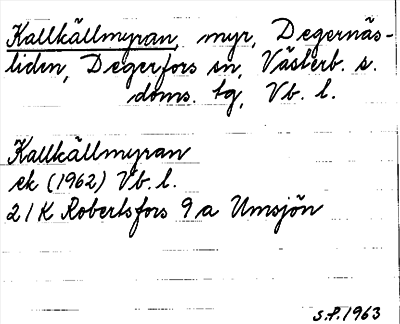 Kallkällmyran, myr, Degernäs-
liden, Degerfors sn, Västerb. s.
doms. tg, Vb. l.
Kallkällmyran
ek (1962) Vb. l.
21K Robertsfors 9a Umsjön
S.P. 1963